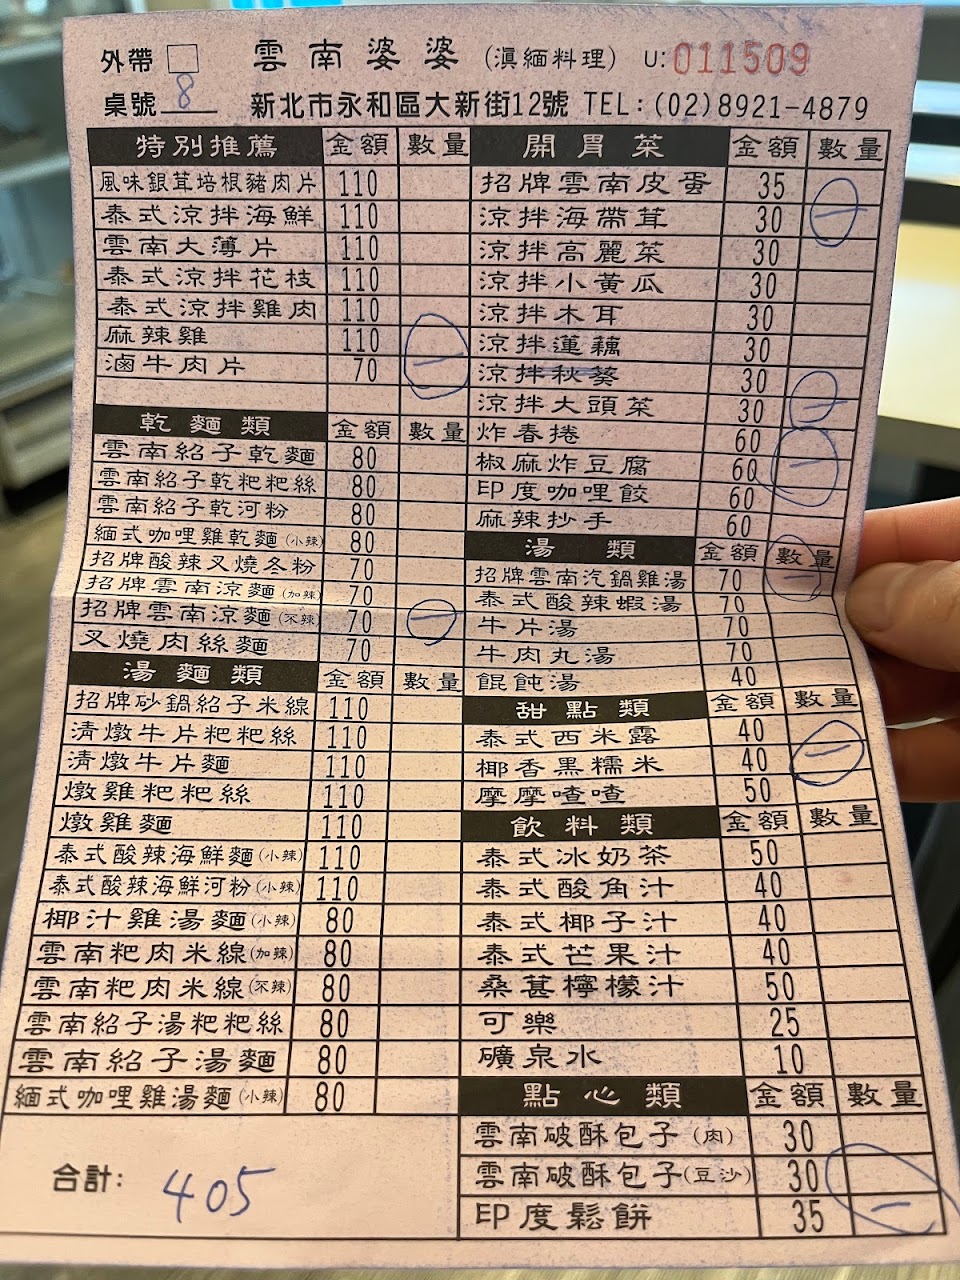 外帶 雲南婆婆 (滇緬料理) U: 011509
桌號 8 新北市永和區大新街12號 TEL:(02)8921-4879
特別推薦 金額 數量
風味銀茸培根豬肉片 110
泰式涼拌海鮮 110
雲南大薄片 110
泰式涼拌花枝 110
泰式涼拌雞肉 110
麻辣雞 110
滷牛肉片 70 一
乾麵類 金額 數量
雲南紹子乾麵 80
雲南紹子乾粑粑絲 80
雲南紹子乾河粉 80
緬式咖哩雞乾麵(小辣) 80
招牌酸辣叉燒冬粉 70
招牌雲南涼麵(加辣) 70
招牌雲南涼麵(不辣) 70 一
叉燒肉絲麵 70
湯麵類 金額 數量
招牌砂鍋紹子米線 110
清燉牛片粑粑絲 110
清燉牛片麵 110
燉雞粑粑絲 110
燉雞麵 110
泰式酸辣海鮮麵(小辣) 110
泰式酸辣海鮮河粉(小辣) 110
椰汁雞湯麵(小辣) 80
雲南粑肉米線(加辣) 80
雲南粑肉米線(不辣) 80
雲南紹子湯粑粑絲 80
雲南紹子湯麵 80
緬式咖哩雞湯麵(小辣) 80
合計: 405
開胃菜 金額 數量
招牌雲南皮蛋 35
涼拌海帶茸 30 一
涼拌高麗菜 30
涼拌小黃瓜 30
涼拌木耳 30
涼拌蓮藕 30
涼拌秋葵 30
涼拌大頭菜 30 一
炸春捲 60
椒麻炸豆腐 60 一
印度咖哩餃 60
麻辣抄手 60
湯類 金額 數量
招牌雲南汽鍋雞湯 70 一
泰式酸辣蝦湯 70
牛片湯 70
牛肉丸湯 70
餛飩湯 40
甜點類 金額 數量
泰式西米露 40
椰香黑糯米 40 一
摩摩喳喳 50
飲料類 金額 數量
泰式冰奶茶 50
泰式酸角汁 40
泰式椰子汁 40
泰式芒果汁 40
桑葚檸檬汁 50
可樂 25
礦泉水 10
點心類 金額 數量
雲南破酥包子(肉) 30
雲南破酥包子(豆沙) 30
印度鬆餅 35 一